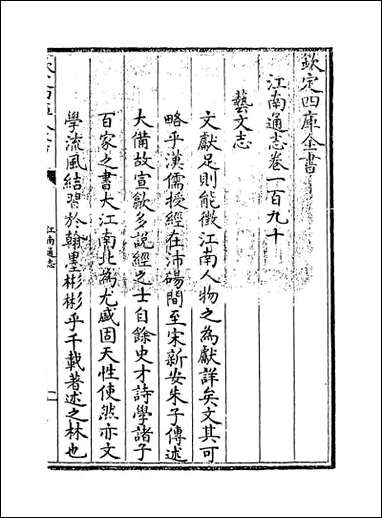 欽定四庫全書
江南通志卷一百九十
藝文志
文獻足則能徵江南人物之為獻詳矣文其可
略乎漢儒授經在沛碭間至宋新安朱子傳述
大備故宣歙多說經之士自餘史才詩學諸子
百家之書大江南北為尤盛固天性使然亦文
學流風結習於翰墨彬彬乎千載著述之林也
江南通志
一